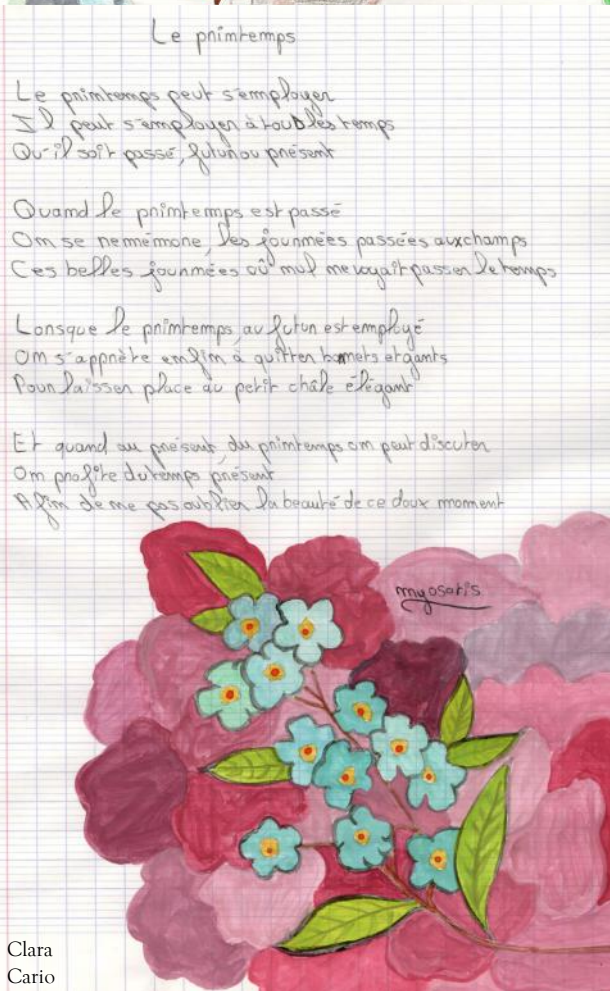 Le printemps
Le printemps peut s'employer
Il peut s'employer à tous les temps
Qu'il soit passé, futur ou présent
Quand le printemps est passé
On se remémore, les journées passées aux champs
Ces belles journées où nul ne voyait passer le temps
Lorsque le printemps, au futur est employé
On s'apprête enfin à quitter bonnets et gants
Pour laisser place au petit châle élégant
Et quand au présent, du printemps on peut discuter
On profite du temps présent
Afin de ne pas oublier la beauté de ce doux moment
myosotis
Clara
Cario